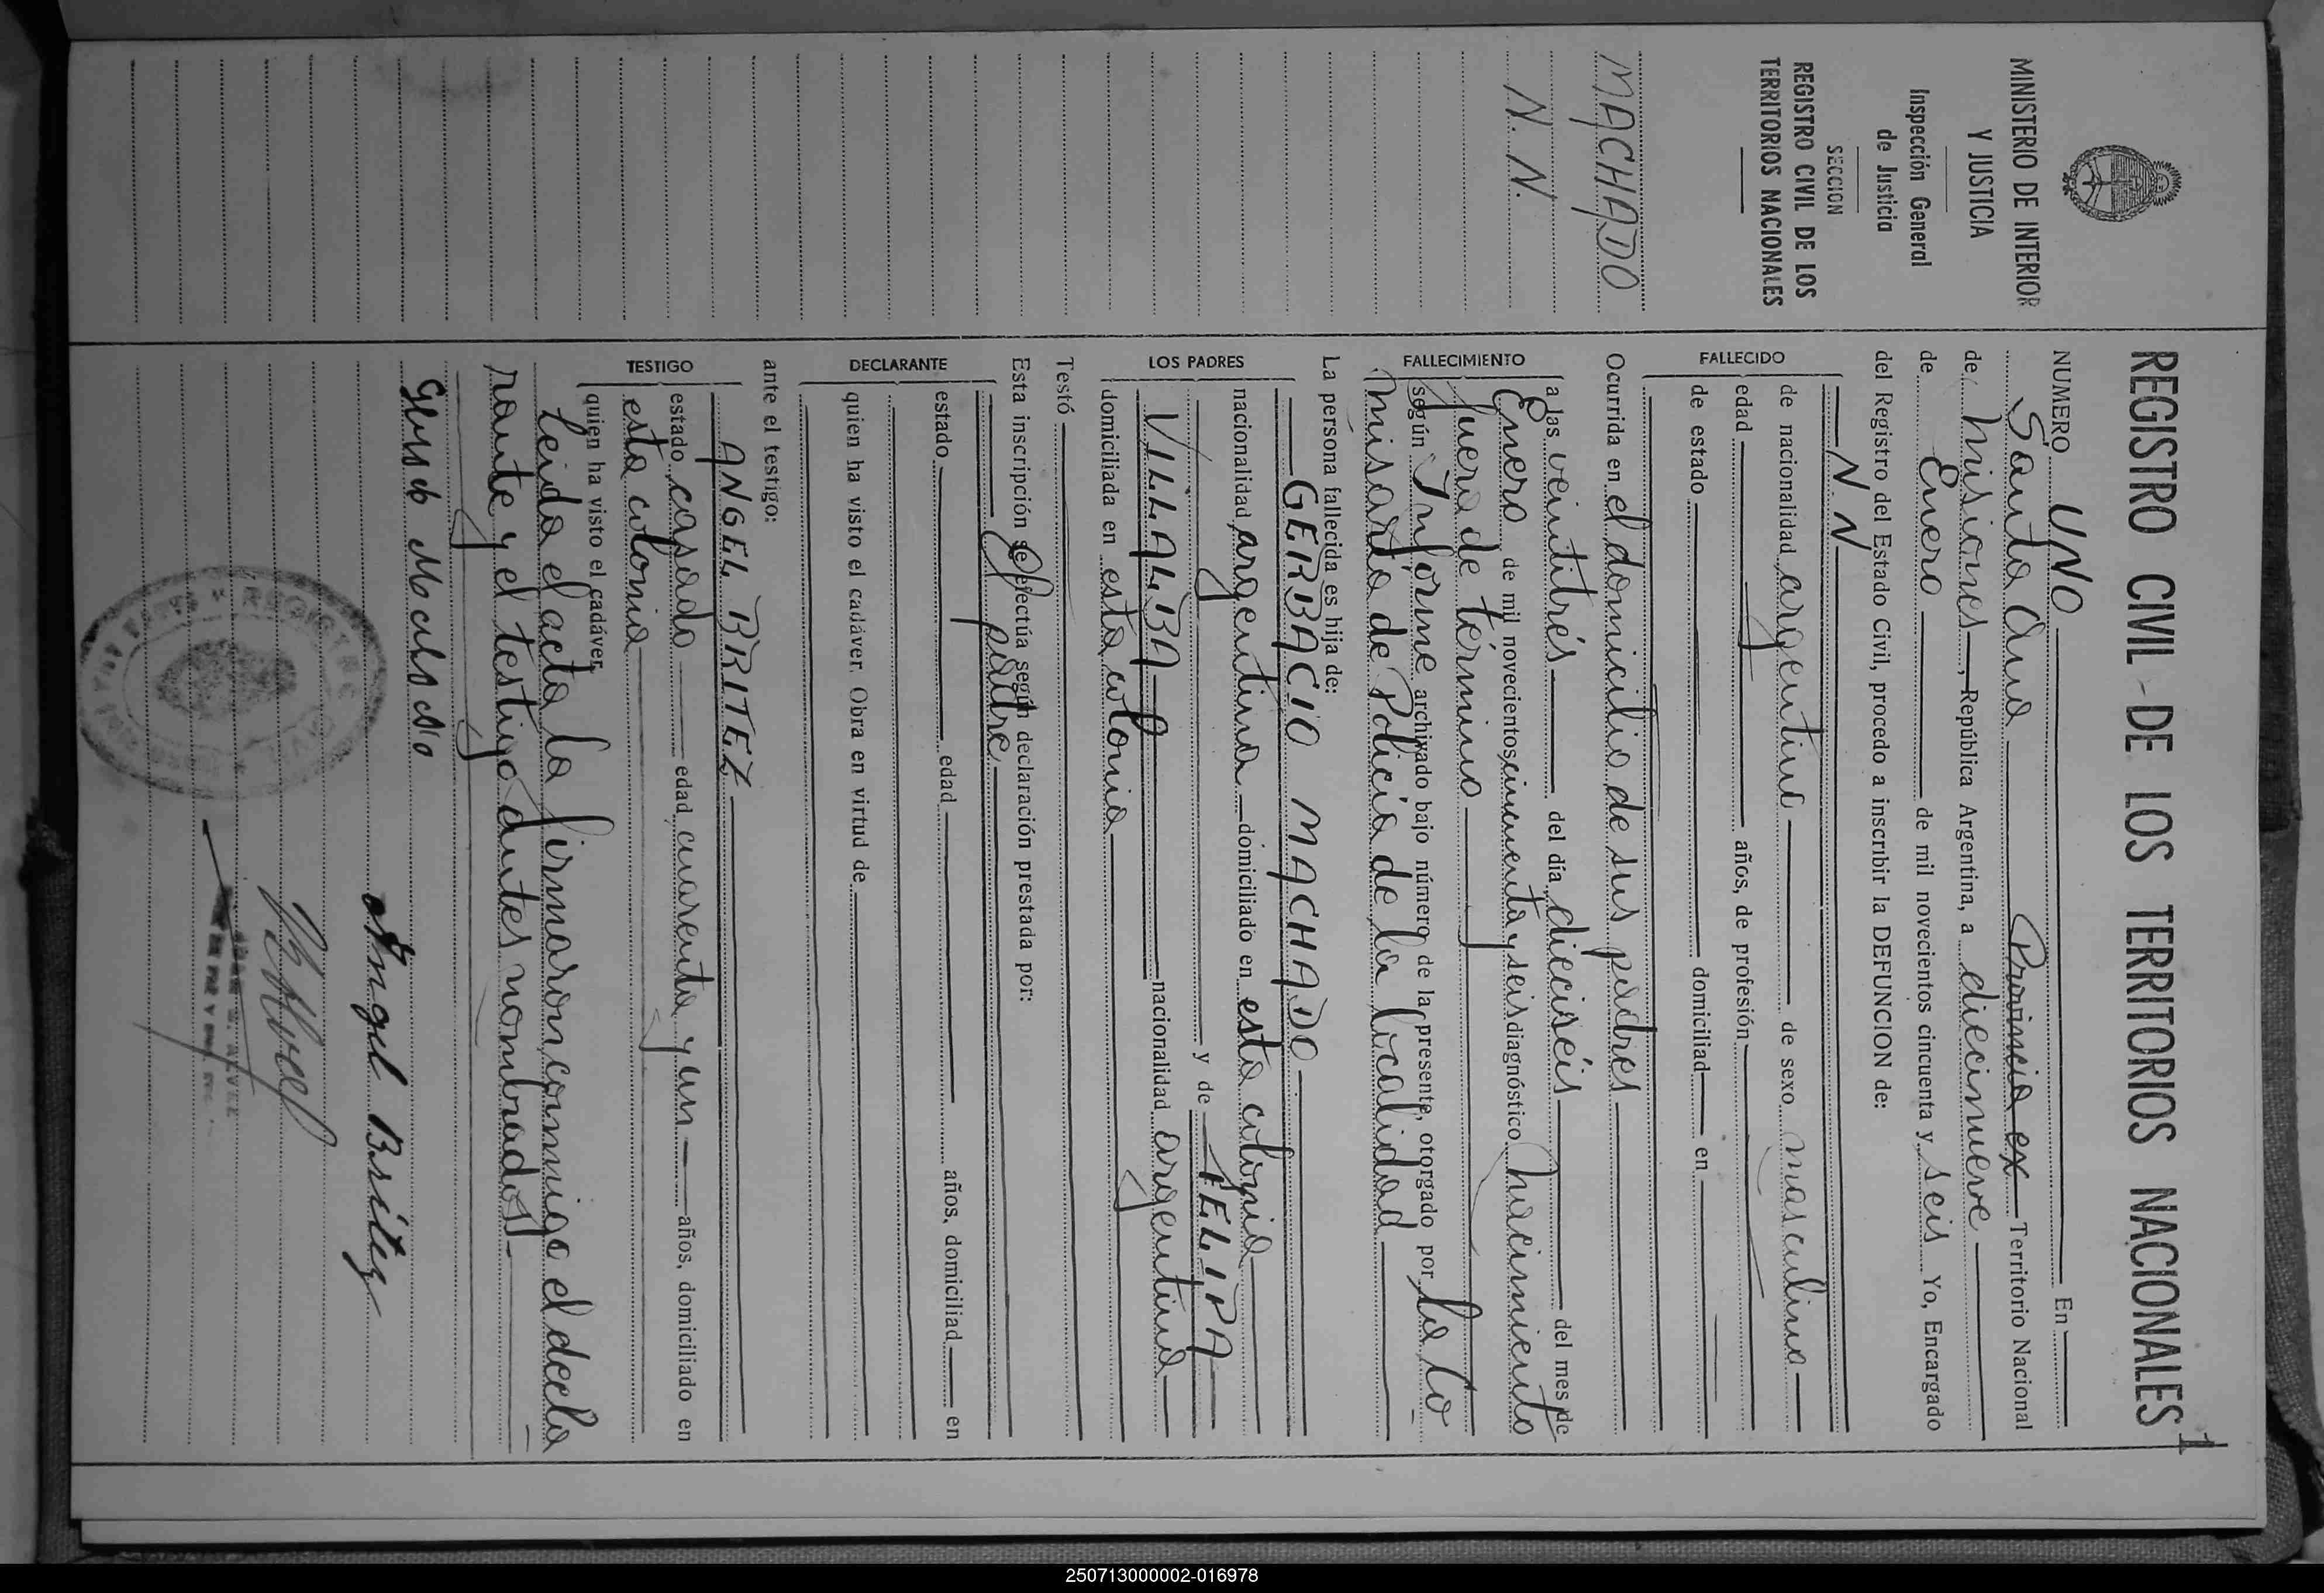 1
MINISTERIO DE INTERIOR
Y JUSTICIA
Inspección General
de Justicia
SECCION
REGISTRO CIVIL DE LOS
TERRITORIOS NACIONALES
MACHADO
N. N.
REGISTRO CIVIL DE LOS TERRITORIOS NACIONALES
NUMERO UNO En
Santa Ana Provincia ex Territorio Nacional
de Misiones, República Argentina, a diecinueve
de Enero de mil novecientos cincuenta y seis Yo, Encargado
del Registro del Estado Civil, procedo a inscribir la DEFUNCION de:
FALLECIDO
N N
de nacionalidad argentino de sexo masculino
edad años, de profesión
de estado domiciliad en
Ocurrida en el domicilio de sus padres
FALLECIMIENTO
a las veintitrés del día dieciséis del mes de
Enero de mil novecientos cincuenta y seis diagnóstico Nacimiento
fuera de término
según Informe archivado bajo número de la presente, otorgado por la Co
misaría de Policía de la localidad
La persona fallecida es hija de:
LOS PADRES
GERBACIO MACHADO
nacionalidad argentina domiciliado en esta colonia
y de FELIPA
VILLALBA nacionalidad argentina
domiciliada en esta colonia
Testó
Esta inscripción se efectúa según declaración prestada por:
DECLARANTE
El padre
estado edad años, domiciliad en
quien ha visto el cadáver. Obra en virtud de
ante el testigo:
TESTIGO
ANGEL BRITEZ
estado casado edad cuarenta y un años, domiciliado en
esta colonia
quien ha visto el cadáver.
Leida el acta la firmaron conmigo el decla
rante y el testigo antes nombrados
Angel Britez
250713000002-016978